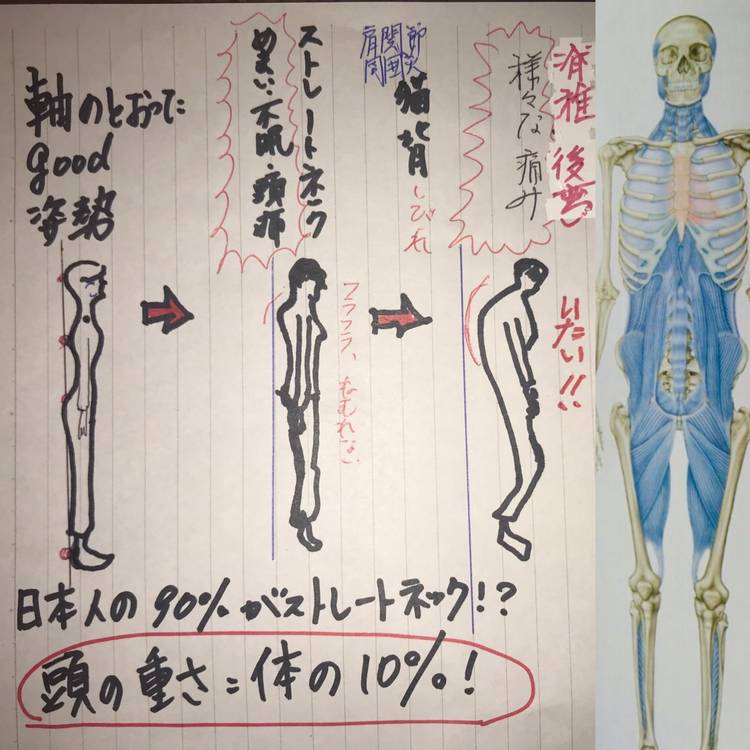 軸のとおった
good
姿勢
ストレートネック
めまい・不眠・頭痛
フラフラ、ねむれない
肩関節
周囲炎
猫背
しびれ
脊椎後弯
様々な痛み
いたい!!
日本人の90%がストレートネック!?
頭の重さ=体の10%!